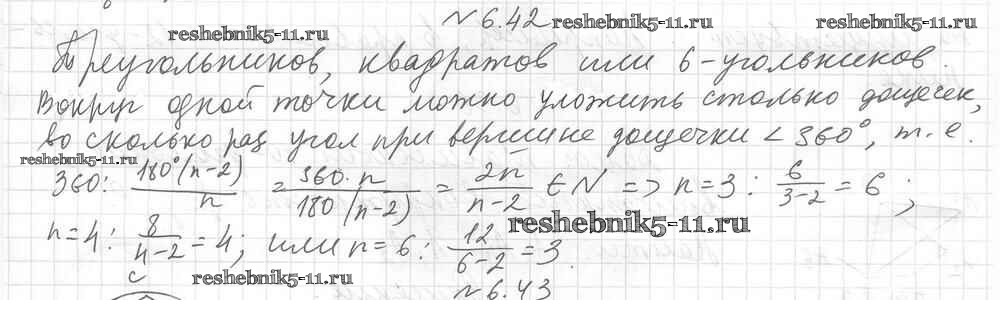 № 6.42 reshebnik5-11.ru
reshebnik5-11.ru
Треугольников, квадратов или 6-угольников.
Вокруг одной точки можно уложить столько дощечек,
во сколько раз угол при вершине дощечки < 360°, т.е.
reshebnik5-11.ru
360: 180°(n-2)/n = 360·n/180(n-2) = 2n/n-2 ∈ N => n=3: 6/3-2 = 6;
reshebnik5-11.ru
n=4: 8/4-2 = 4; или n=6: 12/6-2 = 3.
c reshebnik5-11.ru
№ 6.43